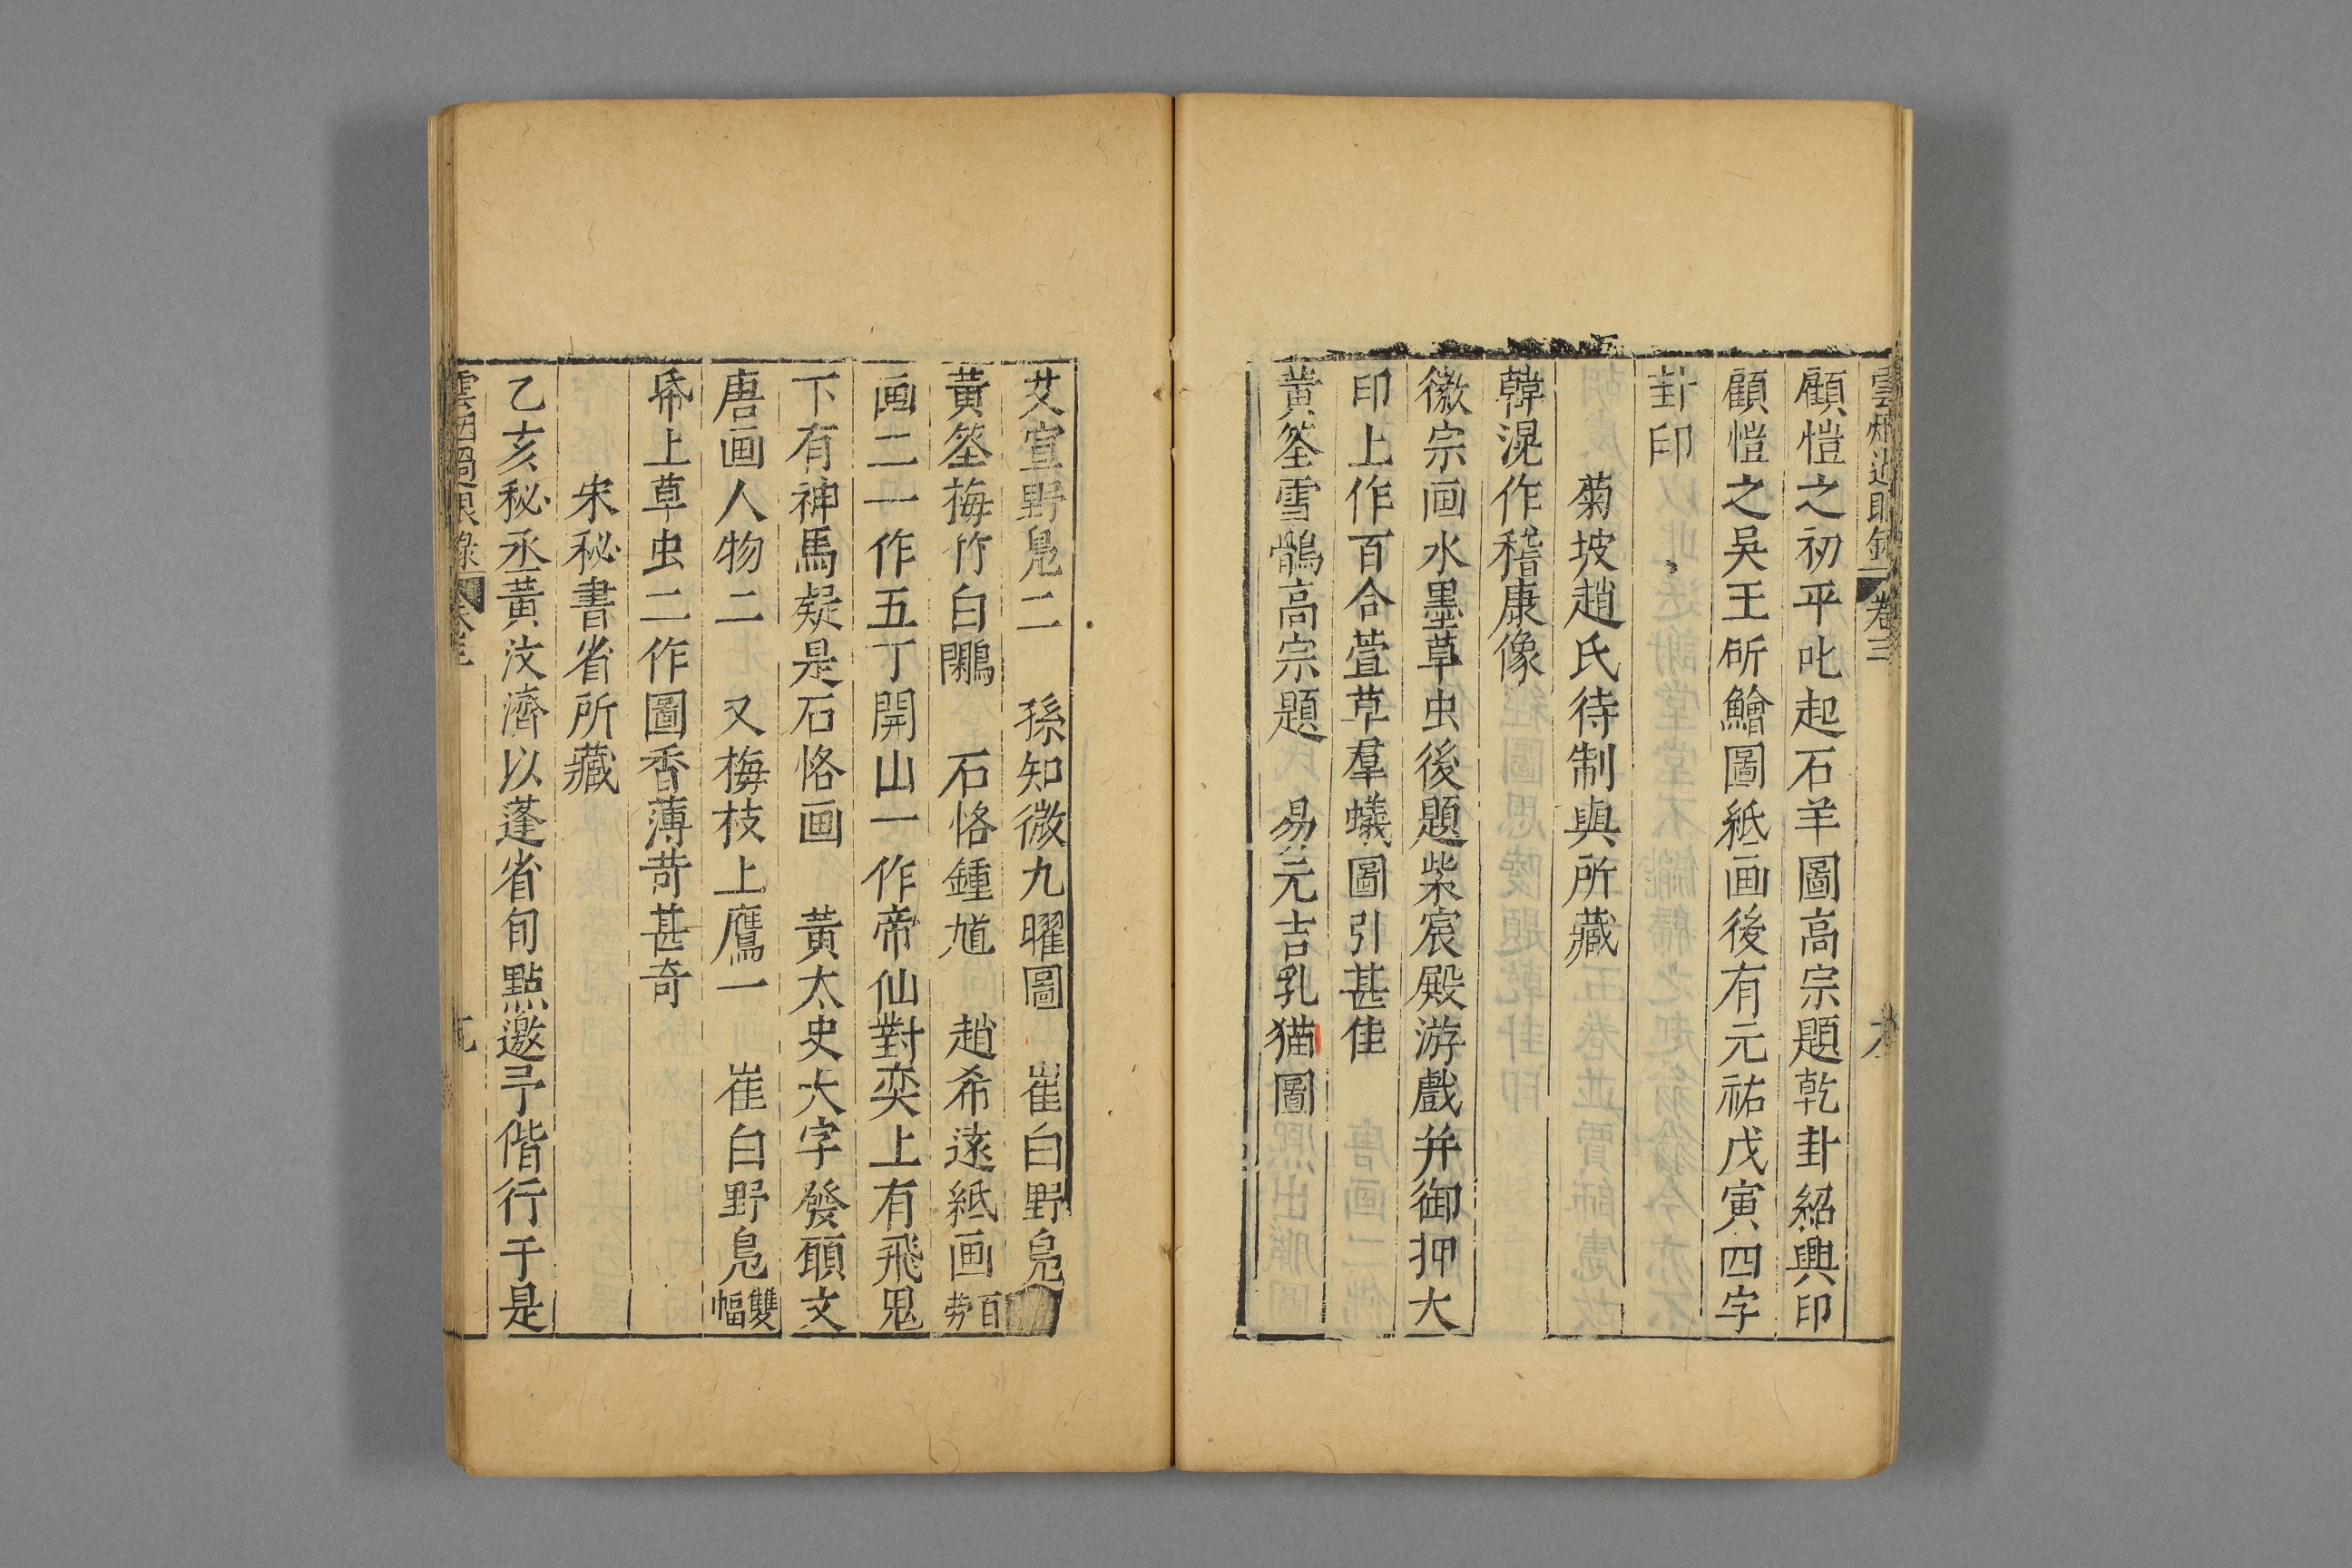 雲烟過眼錄 卷三
顧愷之初平叱起石羊圖高宗題乾卦紹興印
顧愷之吳王斫鱠圖紙画後有元祐戊寅四字
卦印
菊坡趙氏待制與所藏
韓滉作稽康像
徽宗画水墨草虫後題柴宸殿游戲并御押大
印上作百合萱草羣蟻圖引甚佳
黄筌雪鶻高宗題 易元吉乳猫圖
艾宣野鳧二 孫知微九曜圖 崔白野鳧
黄筌梅竹白鷴 石恪鍾馗 趙希遠紙画百勞
画二一作五丁開山一作帝仙對奕上有飛鬼
下有神馬疑是石恪画 黄太史大字發願文
唐画人物二 又梅枝上鷹一 崔白野鳧雙幅
帋上草虫二作圖香薄苛甚奇
宋秘書省所藏
乙亥秘丞黄汶濟以蓬省旬點邀予偕行于是
雲烟過眼錄 卷三